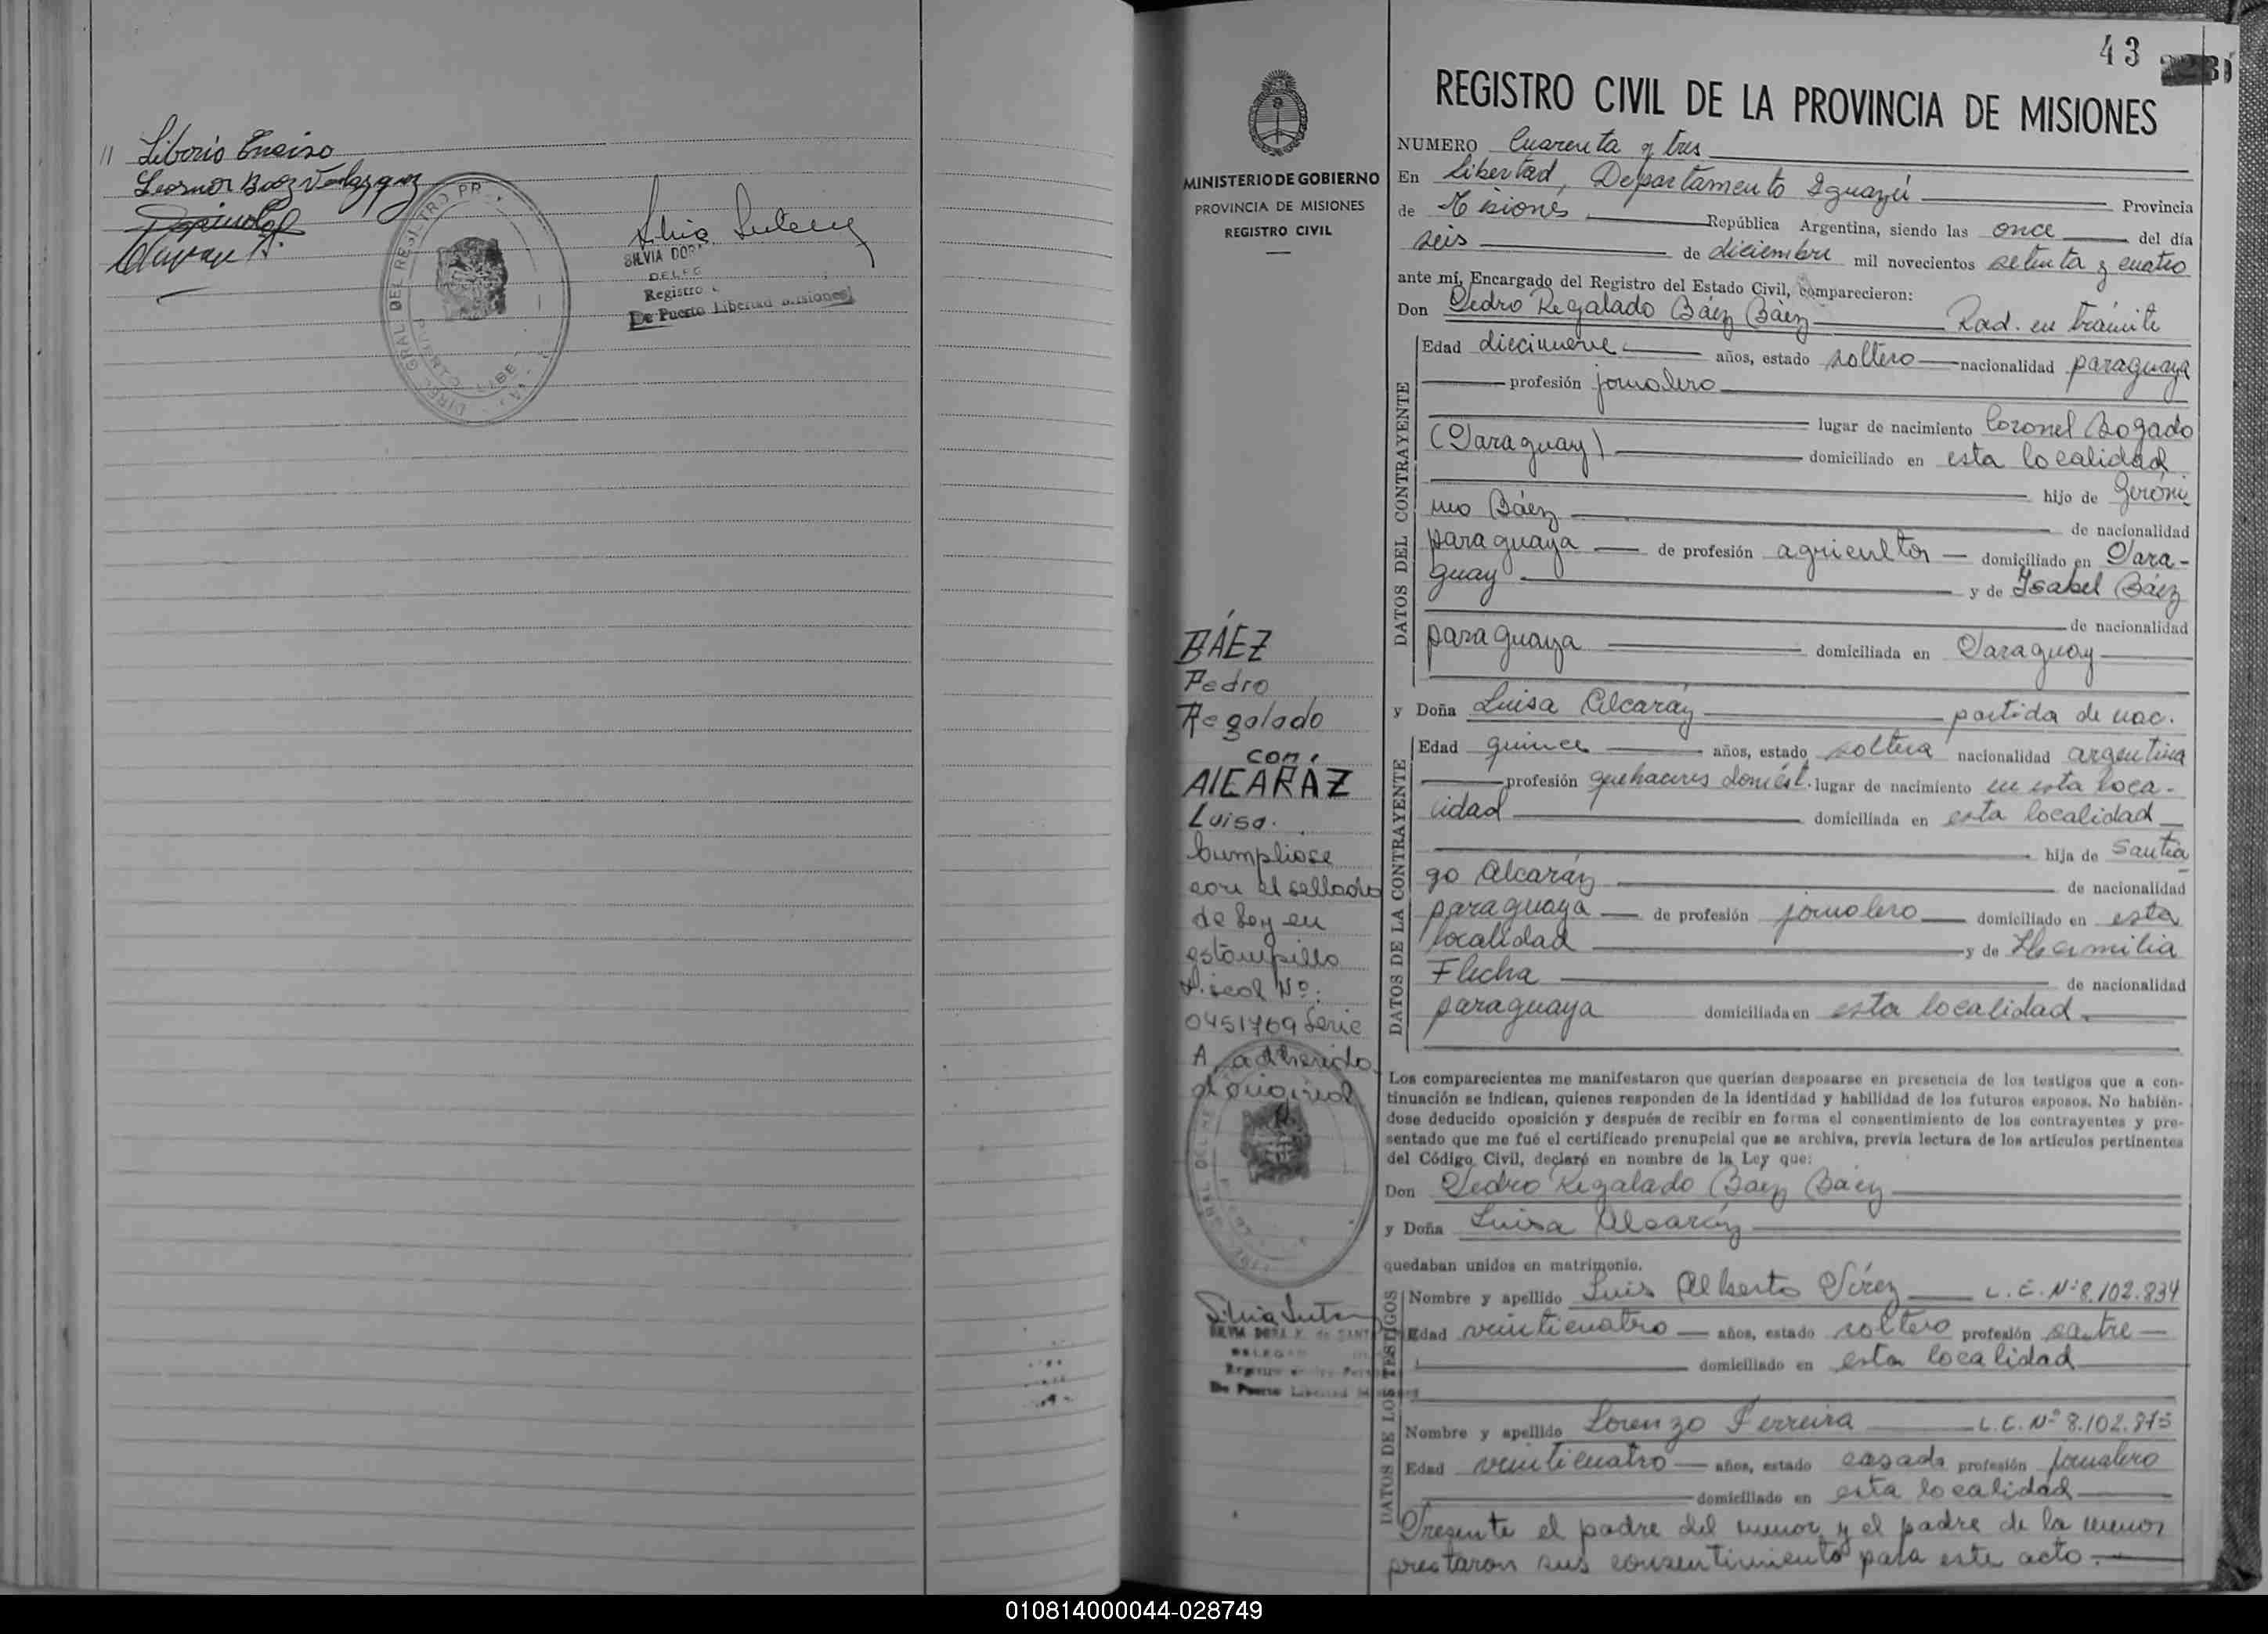 " Liborio Enciso
Leosnor Baez Velazquez
DIREC. GRAL. DEL REGISTRO PR
SILVIA DOR
DELEG
Registro
De Puerto Libertad Misiones
MINISTERIO DE GOBIERNO
PROVINCIA DE MISIONES
REGISTRO CIVIL
BÁEZ
Pedro
Regalado
con
AlCARÁZ
Luisa.
Cumpliose
con el sellado
de Ley en
estampilla
Fiscal Nº
0451769 Serie
A, adherido
al original
Silvia
SILVIA DORA K. de SANT
De Puerto Libertad Misiones
43
REGISTRO CIVIL DE LA PROVINCIA DE MISIONES
NUMERO Cuarenta y tres
En Libertad, Departamento Iguazú Provincia
de Misiones República Argentina, siendo las once del día
seis de diciembre mil novecientos setenta y cuatro
ante mí, Encargado del Registro del Estado Civil, comparecieron:
Don Pedro Regalado Báez Báez Rad. en trámite
DATOS DEL CONTRAYENTE
Edad diecinueve años, estado soltero nacionalidad paraguaya
profesión jornalero
lugar de nacimiento Coronel Bogado
(Paraguay) domiciliado en esta localidad
hijo de Geróni
mo Báez de nacionalidad
paraguaya de profesión agricultor domiciliado en Para-
guay y de Ysabel Báez
de nacionalidad
paraguaya domiciliada en Paraguay
y Doña Luisa Alcaráz partida de nac.
DATOS DE LA CONTRAYENTE
Edad quince años, estado soltera nacionalidad argentina
profesión quehaceres domést. lugar de nacimiento en esta loca-
lidad domiciliada en esta localidad
hija de Santia
go Alcaráz de nacionalidad
paraguaya de profesión jornalero domiciliado en esta
localidad y de Hermilia
Flecha de nacionalidad
paraguaya domiciliada en esta localidad.
Los comparecientes me manifestaron que querían desposarse en presencia de los testigos que a con-
tinuación se indican, quienes responden de la identidad y habilidad de los futuros esposos. No habién-
dose deducido oposición y después de recibir en forma el consentimiento de los contrayentes y pre-
sentado que me fué el certificado prenupcial que se archiva, previa lectura de los artículos pertinentes
del Código Civil, declaré en nombre de la Ley que:
Don Pedro Regalado Baez Báez
y Doña Luisa Alcaráz
quedaban unidos en matrimonio.
DATOS DE LOS TESTIGOS
Nombre y apellido Luis Alberto Pérez L. E. Nº 8.102.834
Edad veinticuatro años, estado soltero profesión sastre
domiciliado en esta localidad
Nombre y apellido Lorenzo Ferreira L. E. Nº 8.102.875
Edad veinticuatro años, estado casado profesión jornalero
domiciliado en esta localidad
Presente el padre del menor y el padre de la menor
prestaron sus consentimiento para este acto.
010814000044-028749